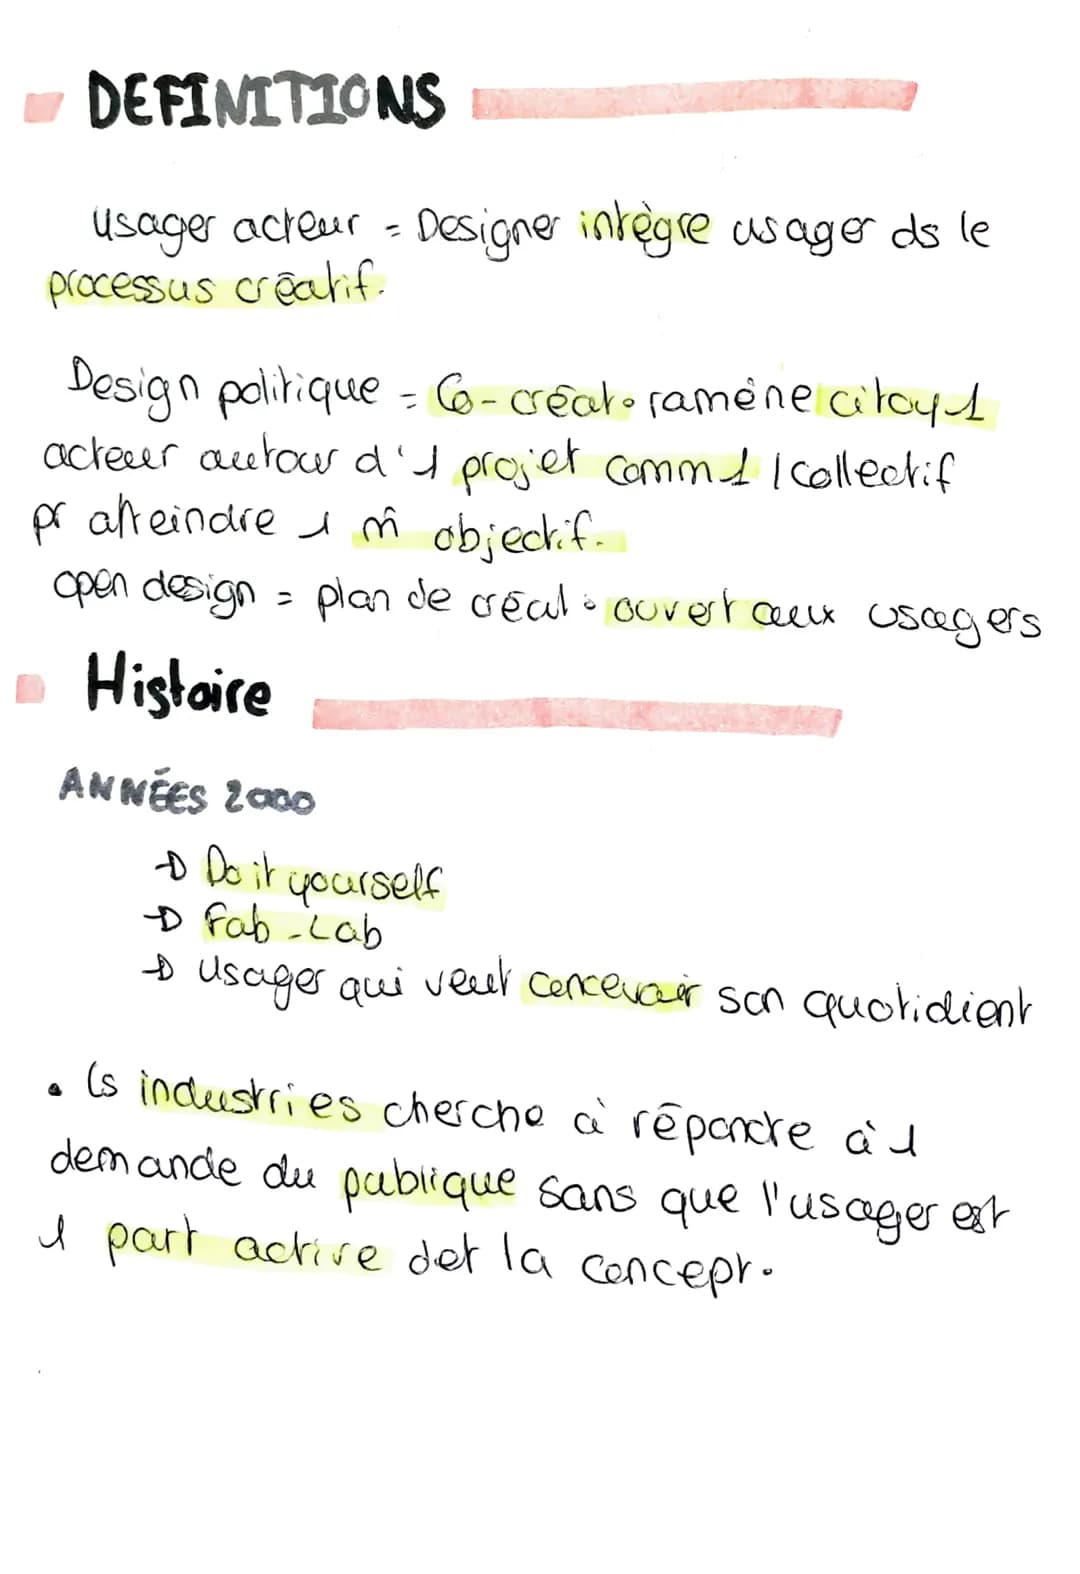 DEFINITIONS
usager acteur = Designer intègre usager ds le
processus créatif.
Design politique = Co-créat° ramène citoy1
acteur autour d'1 projet comm1 / collectif
pr atteindre 1 m̂ objectif.
open design = plan de créat° ouvert aux usagers
Histoire
ANNÉES 2000
→ Do it yourself
→ Fab-Lab
→ Usager qui veut concevoir son quotidient
• Ls industries cherche à répondre à 1
demande du publique sans que l'usager est
1 part active de la concept°.